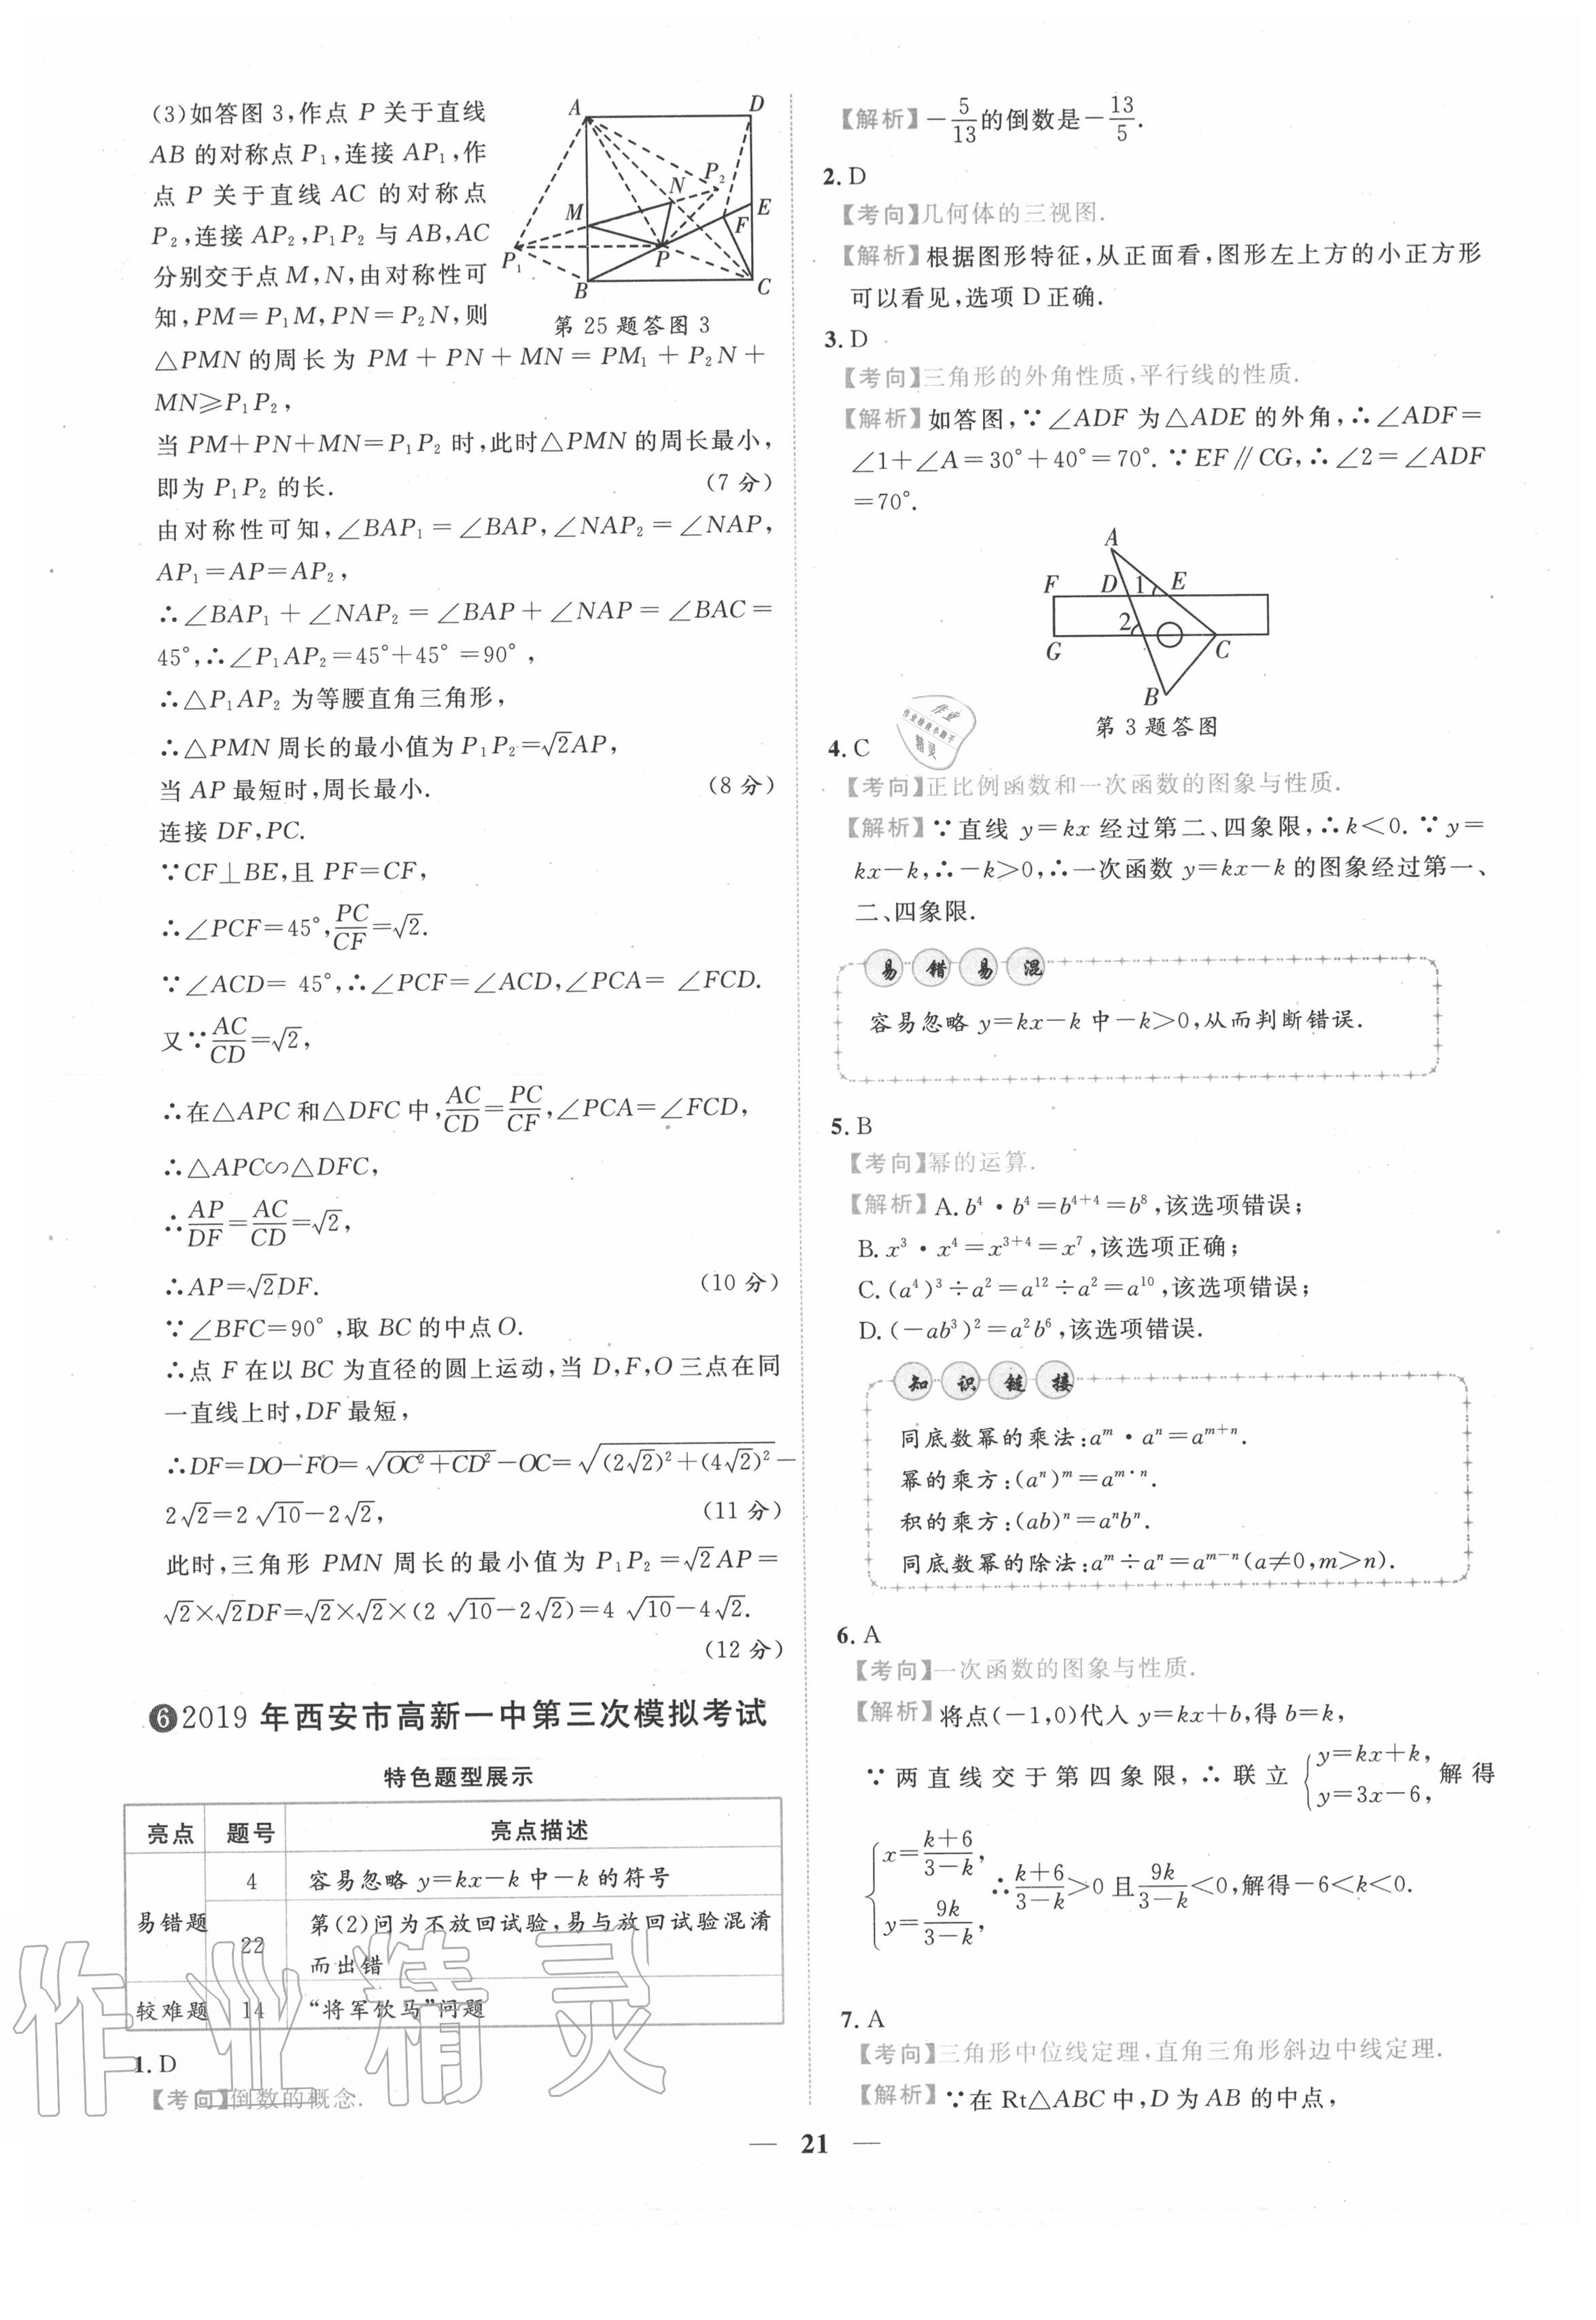 (3)如答图 3,作点 P 关于直线
AB 的对称点 P₁,连接 AP₁,作
点 P 关于直线 AC 的对称点
P₂,连接 AP₂,P₁P₂ 与 AB,AC
分别交于点 M,N,由对称性可
知,PM=P₁M,PN=P₂N,则
A
D
P₂
N
M
E
F
P₁
P
B
C
第 25 题答图 3
△PMN 的周长为 PM+PN+MN=PM₁+P₂N+
MN≥P₁P₂,
当 PM+PN+MN=P₁P₂ 时,此时△PMN 的周长最小,
即为 P₁P₂ 的长. (7 分)
由对称性可知,∠BAP₁=∠BAP,∠NAP₂=∠NAP,
AP₁=AP=AP₂,
∴∠BAP₁+∠NAP₂=∠BAP+∠NAP=∠BAC=
45°,∴∠P₁AP₂=45°+45°=90°,
∴△P₁AP₂ 为等腰直角三角形,
∴△PMN 周长的最小值为 P₁P₂=√2AP,
当 AP 最短时,周长最小. (8 分)
连接 DF,PC.
∵CF⊥BE,且 PF=CF,
∴∠PCF=45°,PC/CF=√2.
∵∠ACD=45°,∴∠PCF=∠ACD,∠PCA=∠FCD.
又∵AC/CD=√2,
∴在△APC 和△DFC 中,AC/CD=PC/CF,∠PCA=∠FCD,
∴△APC∽△DFC,
∴AP/DF=AC/CD=√2,
∴AP=√2DF. (10 分)
∵∠BFC=90°,取 BC 的中点 O.
∴点 F 在以 BC 为直径的圆上运动,当 D,F,O 三点在同
一直线上时,DF 最短,
∴DF=DO−FO=√(OC²+CD²)−OC=√((2√2)²+(4√2)²)−
2√2=2√10−2√2, (11 分)
此时,三角形 PMN 周长的最小值为 P₁P₂=√2AP=
√2×√2DF=√2×√2×(2√10−2√2)=4√10−4√2.
(12 分)
❻2019 年西安市高新一中第三次模拟考试
特色题型展示
亮点 题号 亮点描述
易错题 4 容易忽略 y=kx−k 中−k 的符号
22 第(2)问为不放回试验,易与放回试验混淆
而出错
较难题 14 “将军饮马”问题
1. D
【考向】倒数的概念.
【解析】−5/13的倒数是−13/5.
2. D
【考向】几何体的三视图.
【解析】根据图形特征,从正面看,图形左上方的小正方形
可以看见,选项 D 正确.
3. D
【考向】三角形的外角性质,平行线的性质.
【解析】如答图,∵∠ADF 为△ADE 的外角,∴∠ADF=
∠1+∠A=30°+40°=70°. ∵EF∥CG,∴∠2=∠ADF
=70°.
A
F
D
1
E
2
G
C
B
第 3 题答图
4. C
【考向】正比例函数和一次函数的图象与性质.
【解析】∵直线 y=kx 经过第二、四象限,∴k<0. ∵y=
kx−k,∴−k>0,∴一次函数 y=kx−k 的图象经过第一、
二、四象限.
易错易混
容易忽略 y=kx−k 中−k>0,从而判断错误.
5. B
【考向】幂的运算.
【解析】A. b⁴·b⁴=b⁴⁺⁴=b⁸,该选项错误;
B. x³·x⁴=x³⁺⁴=x⁷,该选项正确;
C. (a⁴)³÷a²=a¹²÷a²=a¹⁰,该选项错误;
D. (−ab³)²=a²b⁶,该选项错误.
知识链接
同底数幂的乘法:aᵐ·aⁿ=aᵐ⁺ⁿ.
幂的乘方:(aⁿ)ᵐ=aᵐ·ⁿ.
积的乘方:(ab)ⁿ=aⁿbⁿ.
同底数幂的除法:aᵐ÷aⁿ=aᵐ⁻ⁿ(a≠0,m>n).
6. A
【考向】一次函数的图象与性质.
【解析】将点(−1,0)代入 y=kx+b,得 b=k,
∵两直线交于第四象限,∴联立{y=kx+k, y=3x−6,解得
{x=(k+6)/(3−k), y=9k/(3−k), ∴(k+6)/(3−k)>0 且 9k/(3−k)<0,解得−6<k<0.
7. A
【考向】三角形中位线定理,直角三角形斜边中线定理.
【解析】∵在 Rt△ABC 中,D 为 AB 的中点,
— 21 —
作业精灵
作业
作业检查小助手
精灵